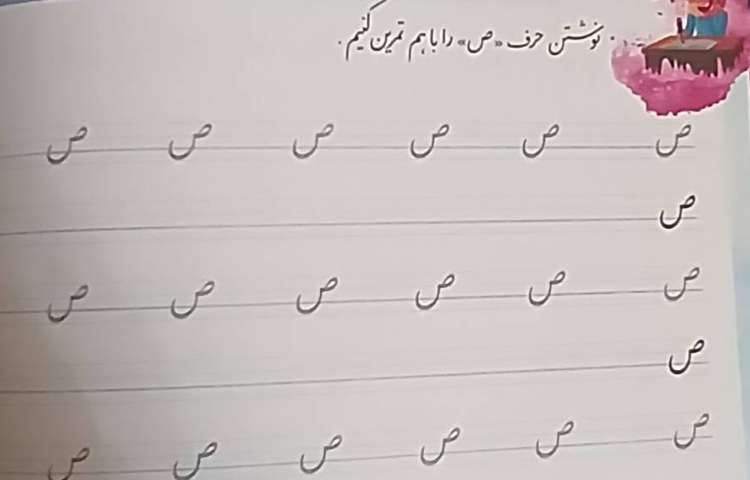 نوشتن حرف «ص» را با هم تمرین کنیم.
ص ص ص ص ص ص
ص
ص ص ص ص ص ص
ص
ص ص ص ص ص ص